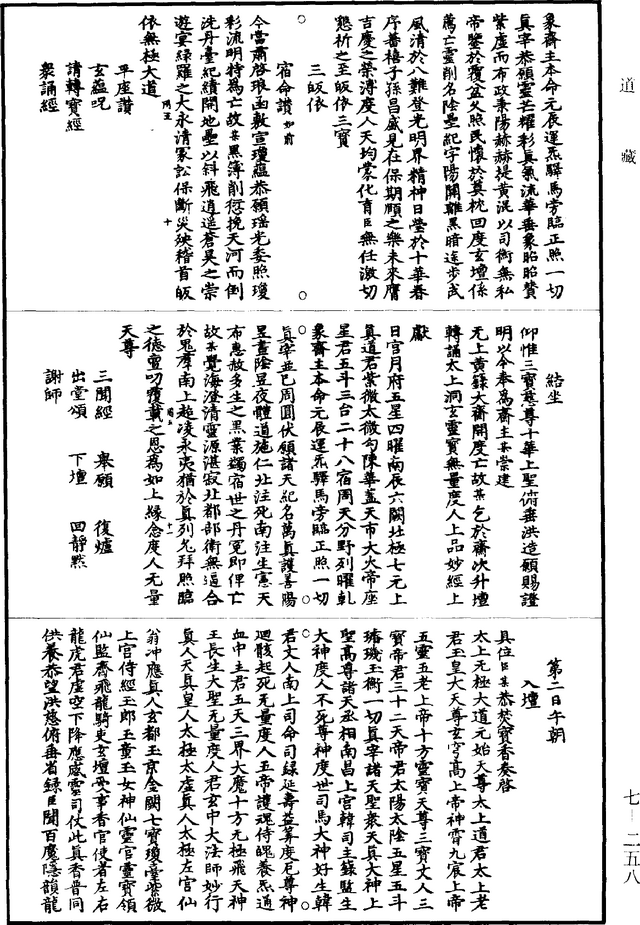 道藏
象齋主本命元辰運炁驛馬旁臨正照一切
真宰恭願靈芒耀彩真氣流華垂象昭昭贊
紫虛而布政秉陽赫赫提黃混以司衡無私
帝鑒於覆盆久照民懷於奠枕回度玄壇係
薦亡靈削名陰墨紀字陽開離黑暗迄步武
風清於八難登光明界精神日瑩於十華春
序蕃禧子孫昌盛見在保期頤之樂未來膺
吉慶之榮溥度人天均蒙化育臣無任激切
懇祈之至皈依三寶
三皈依
宿命讚如前
今當肅啓琅函敷宣瓊蘊恭願瑤光委照瓊
彩流明特為亡故某黑簿削愆挽天河而倒
洗丹臺紀績開地壘以斜飛逍遥蒼昊之崇
遊宴綠羅之大永清冢訟保斷災殃稽首皈
依無極大道
平座讚
玄蘊呪
請轉寶經
衆誦經
結坐
仰惟三寶慈尊十華上聖俯垂洪造願賜證
明以今奉為齋主某崇建
无上黃籙大齋開度亡故某乞於齋次升壇
轉誦太上洞玄靈寶無量度人上品妙經上
獻
日宮月府五星四曜南辰六闕北極七元上
真道君紫微太微勾陳華蓋天市大火帝座
星君五斗三台二十八宿周天分野列曜乾
象齋主本命元辰運炁驛馬旁臨正照一切
真宰並已周圓伏願諸天紀名萬真護善陽
昱晝陰昱夜體道施仁北注死南注生憲天
布惠赦多生之黑業蠲宿世之丹冤即俾亡
故某覺海澄清靈源湛寂北都部衛無逼合
於鬼羣南上超凌永夷猶於真列允拜照臨
之德實叨覆載之恩為如上緣念度人无量
天尊
三聞經　舉願　復爐
出堂頌　下壇　回靜默
謝師
第二日午朝
入壇
具位臣某恭焚寶香奏啓
太上无極大道元始天尊太上道君太上老
君玉皇大天尊玄穹高上帝神霄九宸上帝
五靈五老上帝十方靈寶天尊三寶文人三
寶帝君三十二天帝君太陽太陰五星五斗
璿璣玉衡一切真宰諸天聖衆天真大神上
聖高尊諸天丞相南昌上宮韓司主錄監生
大神度人不死尊神度世司馬大神好生韓
君文人南上司命司錄延壽益算度厄尊神
迴骸起死无量度人五帝護魂侍魄養炁通
血中主君五天三界大魔十方无極飛天神
王長生大聖无量度人君玄中大法師妙行
真人天真皇人太極太虛真人太極左宮仙
翁冲應真人玄都玉京金闕七寶瓊臺紫微
上宮侍經玉郎玉童玉女神仙靈官靈寶領
仙監齋飛龍騎吏玄壇受事香官使者左右
龍虎君虛空下降應感靈司仗此真香普同
供養恭望洪慈俯垂省錄臣聞百魔隱韻龍
七—二五八